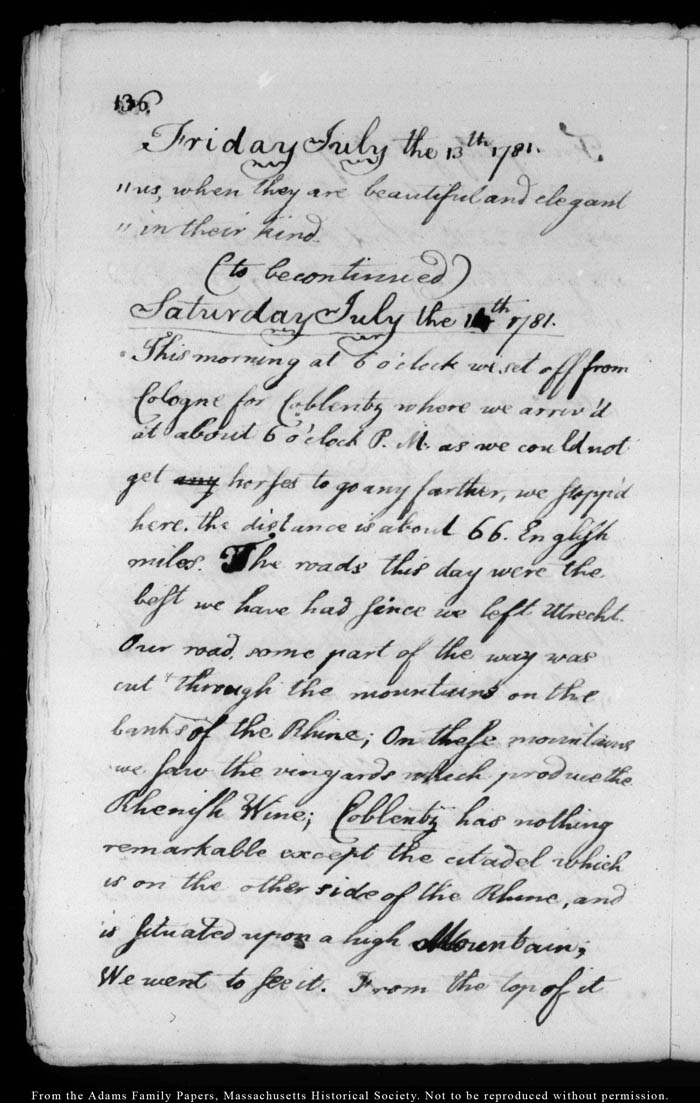 136
Friday July the 13th 1781.
"us, when they are beautiful and elegant
"in their kind.
(to be continued)
Saturday July the 14th 1781.
This morning at 6 o'clock we set off from
Cologne for Coblentz where we arriv'd
at about 6 o'clock P.M. as we could not
get any horses to go any farther, we stopp'd
here. the distance is about 66. English
miles. The roads this day were the
best we have had since we left Utrecht.
Our road, some part of the way was
cut through the mountains on the
banks of the Rhine; On these mountains
we saw the vinyards which produce the
Rhenish Wine; Coblentz has nothing
remarkable except the citadel which
is on the other side of the Rhine, and
is situated upon a high Mountain;
We went to see it. From the top of it
From the Adams Family Papers, Massachusetts Historical Society. Not to be reproduced without permission.